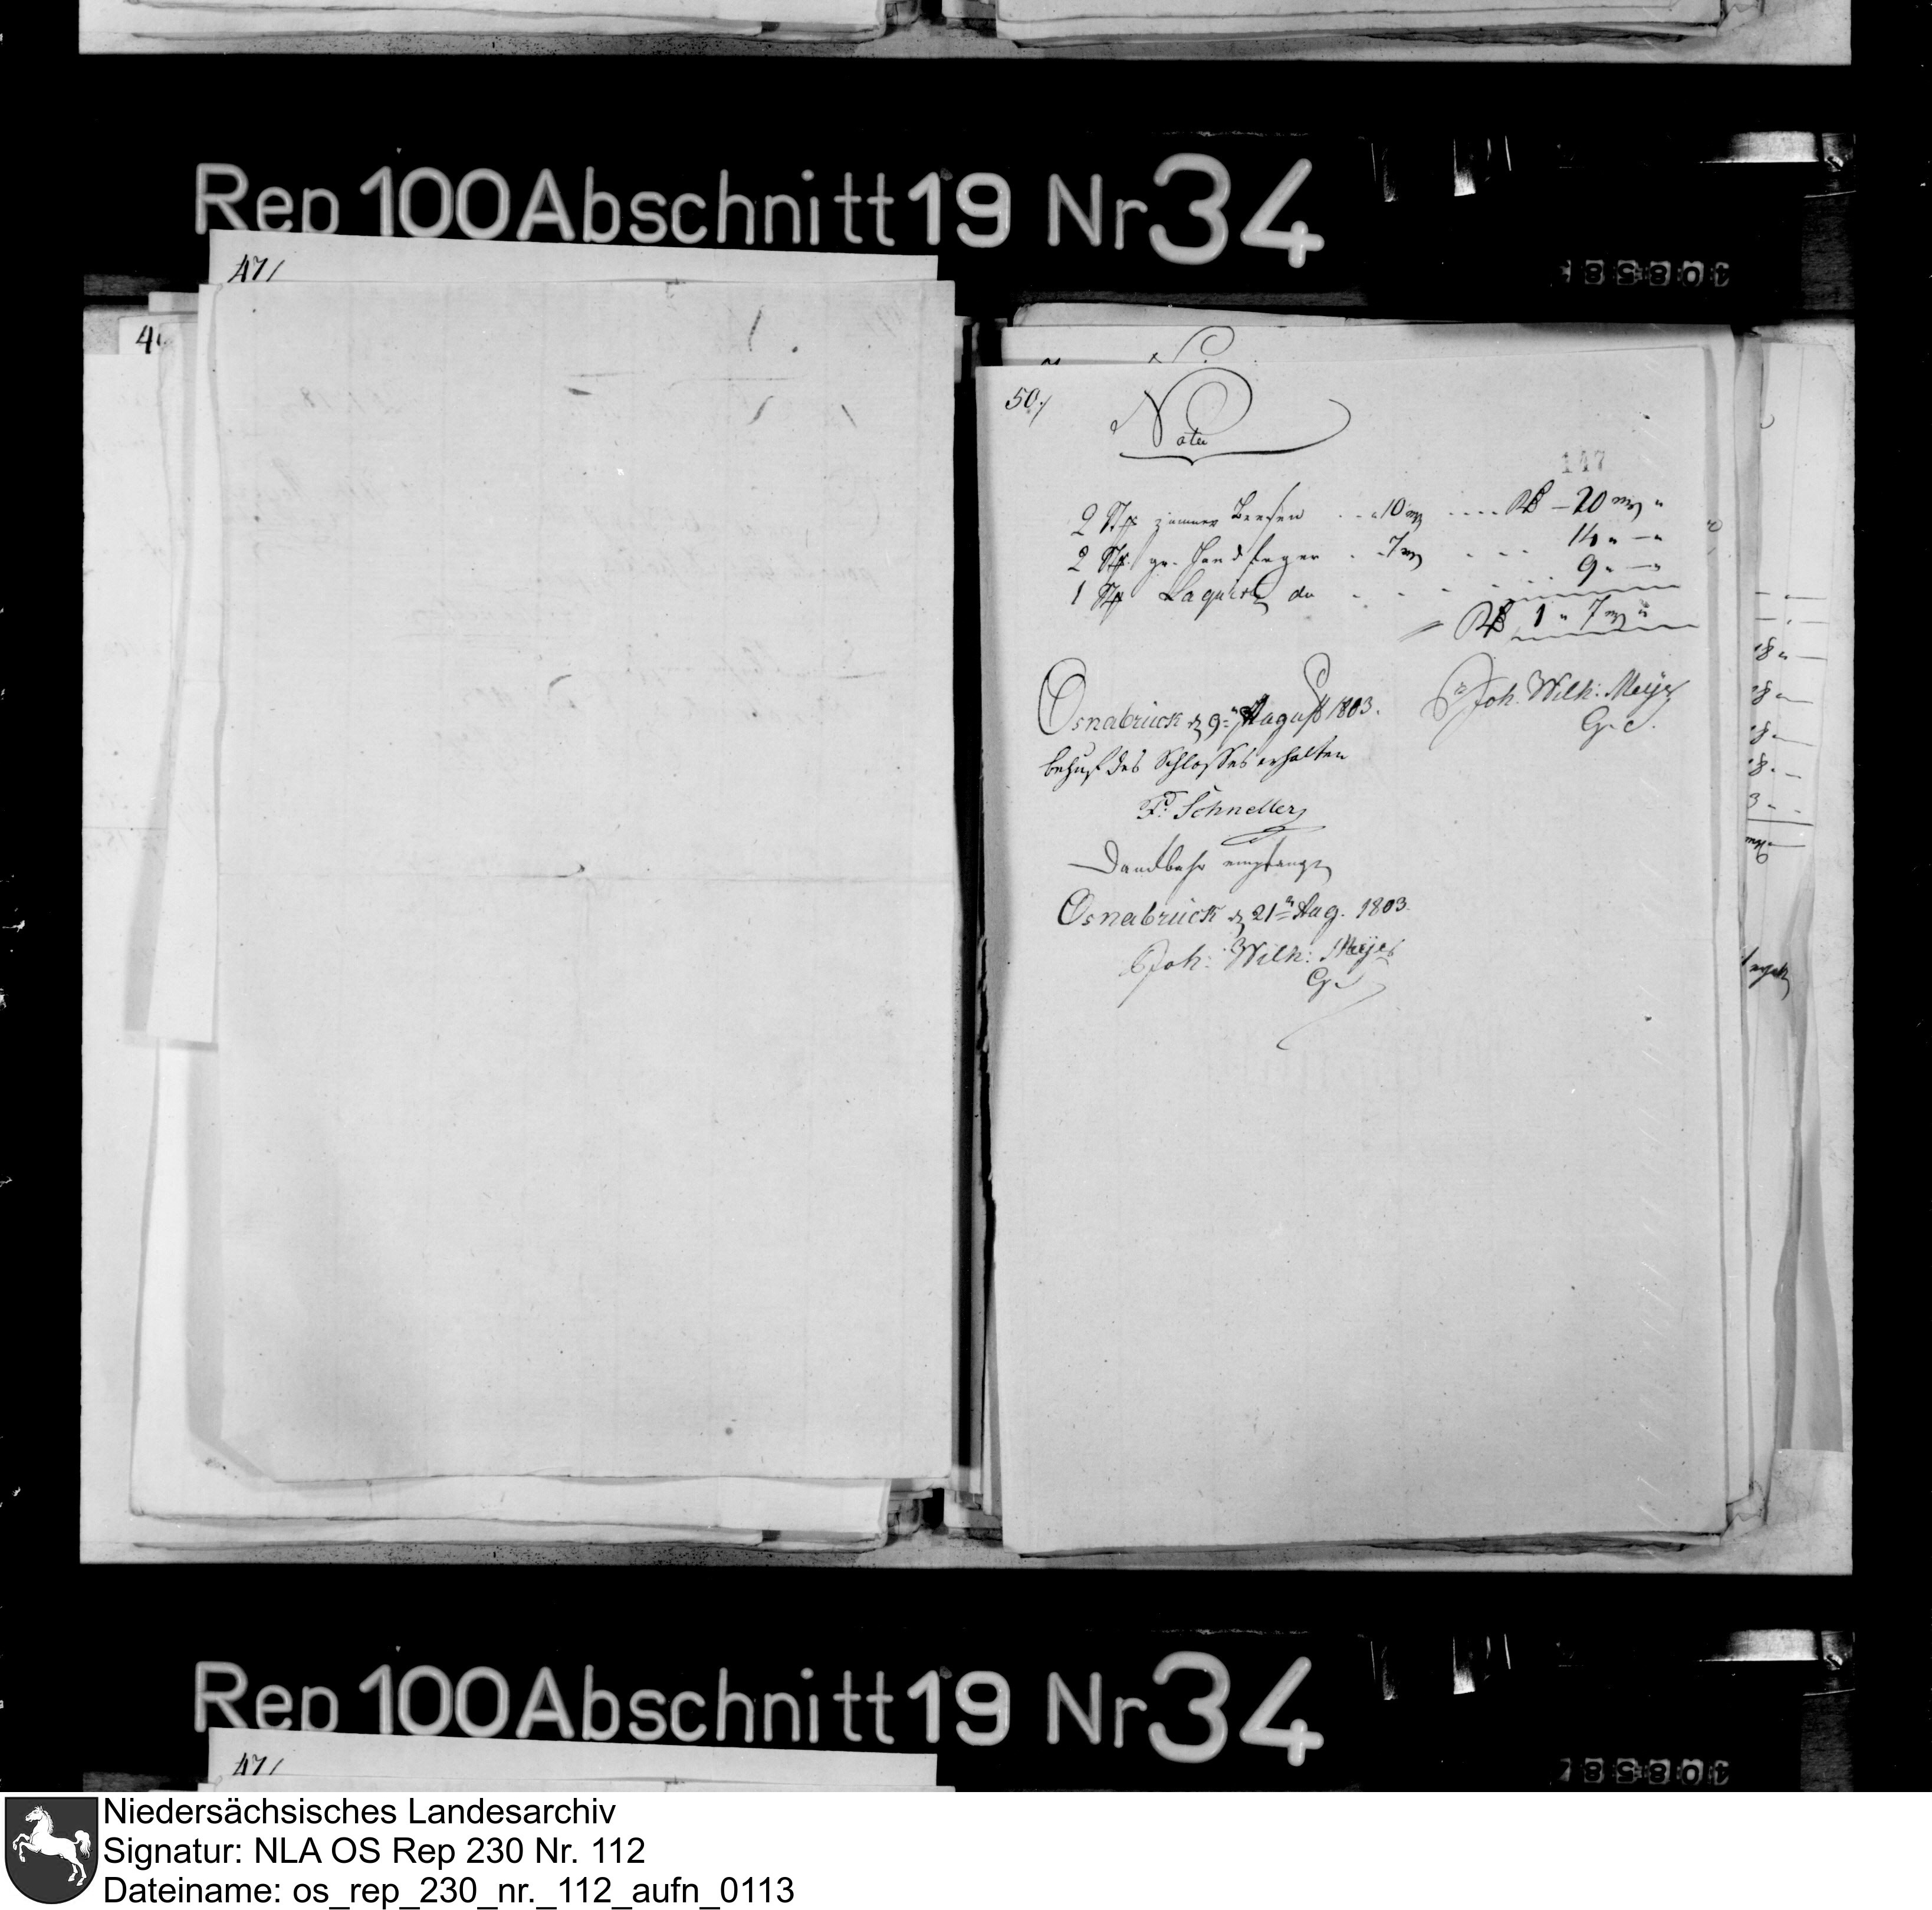 Rep 100 Abschnitt 19 Nr 34
47/
50./
Nota
147
2 Stk zimmer Beesen . . . 10 mg . . . . Rth – 20 mg "
2 Stk gr. Handfeger . . 7 mg . . . 14 " – "
1 Stk Laquirt do . . . . . 9 " – "
Rth 1 " 7 mg "
Osnabrück d 9ten August 1803.
Joh. Wilh: Meyer
behuf des Schlosses erhalten
F. Schneller
Dankbahr empfangen
Osnabrück d 21ten Aug. 1803.
Joh: Wilh: Meyer
Rep 100 Abschnitt 19 Nr 34
47/
Niedersächsisches Landesarchiv
Signatur: NLA OS Rep 230 Nr. 112
Dateiname: os_rep_230_nr._112_aufn_0113